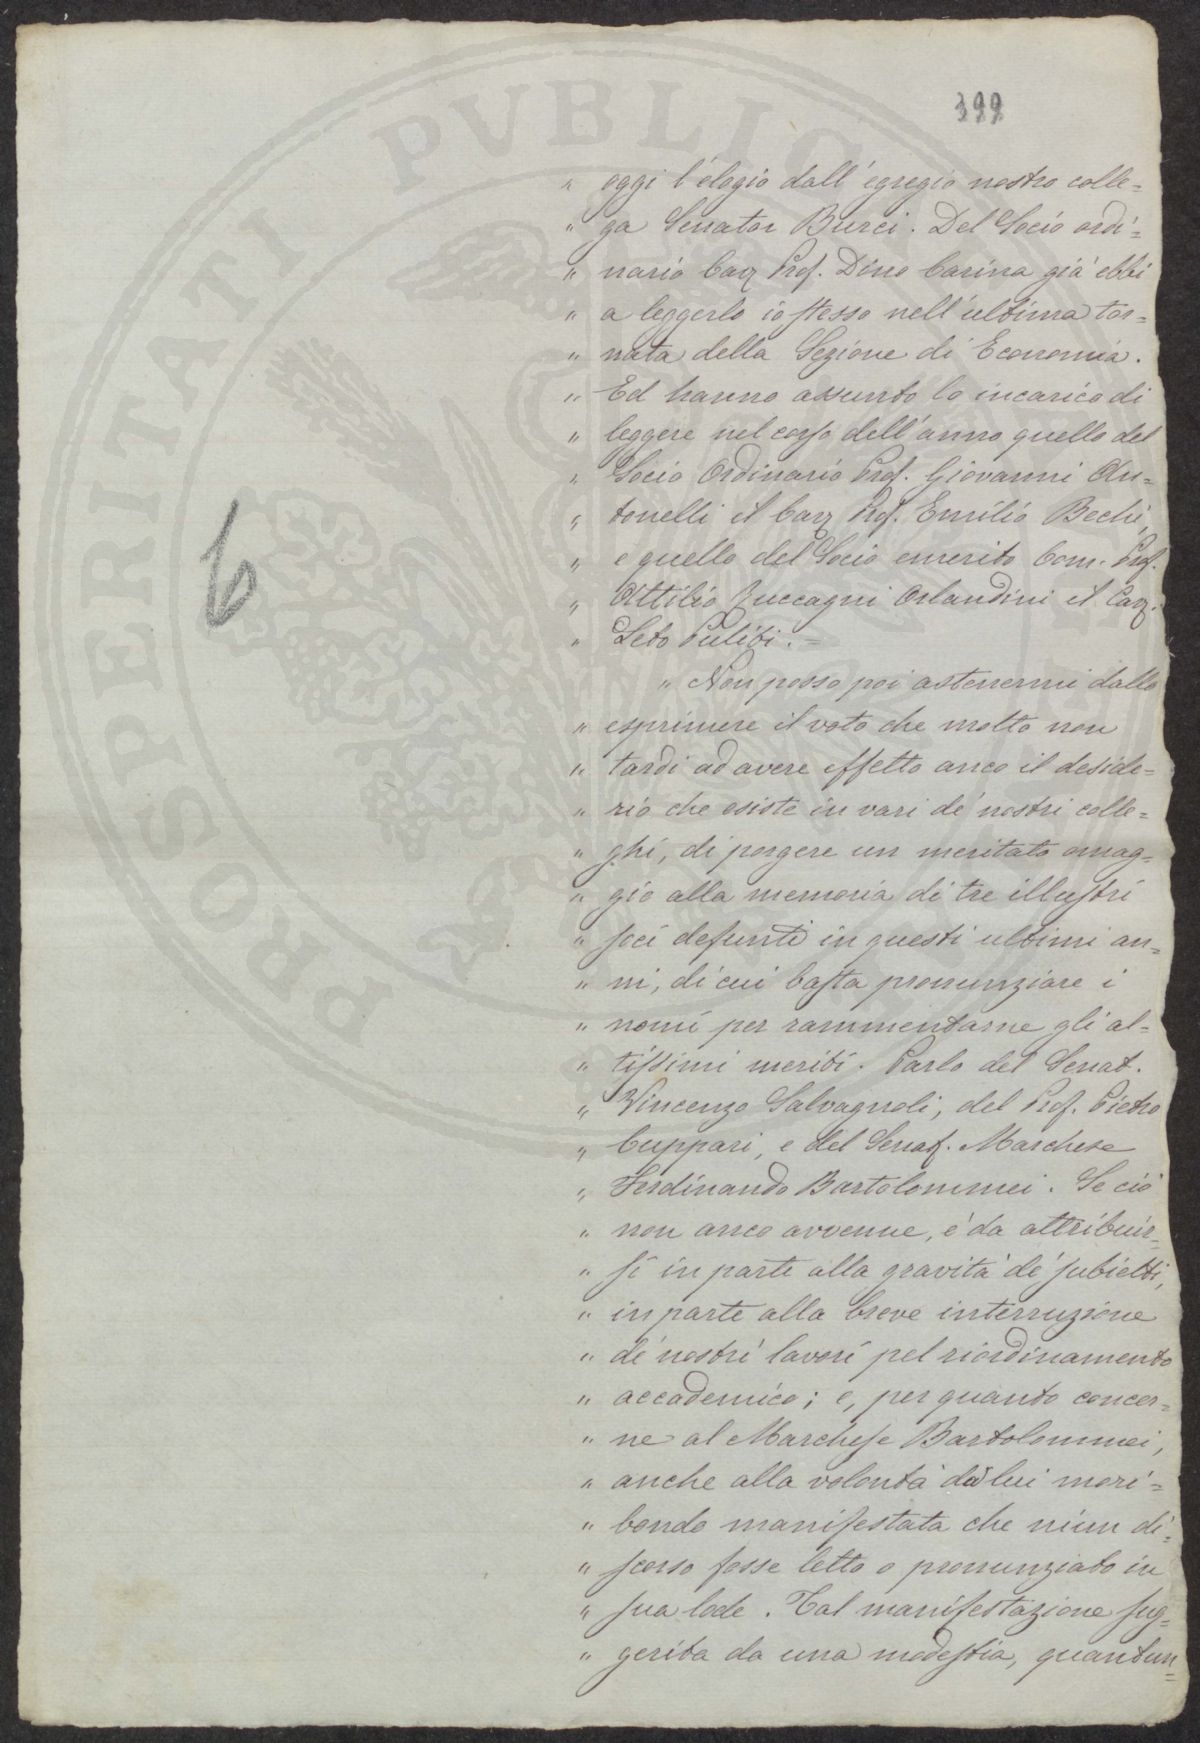 399
" oggi l'elogio dall'egregio nostro colle=
" ga Senator Burci. Del Socio ordi=
" nario Cav. Prof. Dino Carina già ebbi
" a leggerlo io stesso nell'ultima tor=
" nata della Sezione di Economia.
" Ed hanno assunto lo incarico di
" leggere nel corso dell'anno quello del
" Socio Ordinario Prof. Giovanni An=
" tonelli il Cav. Prof. Emilio Bechi,
" e quello del Socio emerito Com. Prof.
" Attilio Zuccagni Orlandini il Cav.
" Leto Puliti. —
" Non posso poi astenermi dallo
" esprimere il voto che molto non
" tardi ad avere effetto anco il deside=
" rio che esiste in vari de' nostri colle=
" ghi, di porgere un meritato omag=
" gio alla memoria di tre illustri
" soci defunti in questi ultimi an=
" ni, di cui basta pronunziare i
" nomi per rammentarne gli al=
" tissimi meriti. Parlo del Senat.
" Vincenzo Salvagnoli, del Prof. Pietro
" Cuppari, e del Senat. Marchese
" Ferdinando Bartolommei. Se ciò
" non anco avvenne, è da attribuir=
" si in parte alla gravità de' subietti,
" in parte alla breve interruzione
" de' nostri lavori pel riordinamento
" accademico; e, per quanto concer=
" ne al Marchese Bartolommei,
" anche alla volontà da lui mori=
" bondo manifestata che niun di=
" scorso fosse letto o pronunziato in
" sua lode. Tal manifestazione sug=
" gerita da una modestia, quantun=
PROSPERITATI PVBLICAE